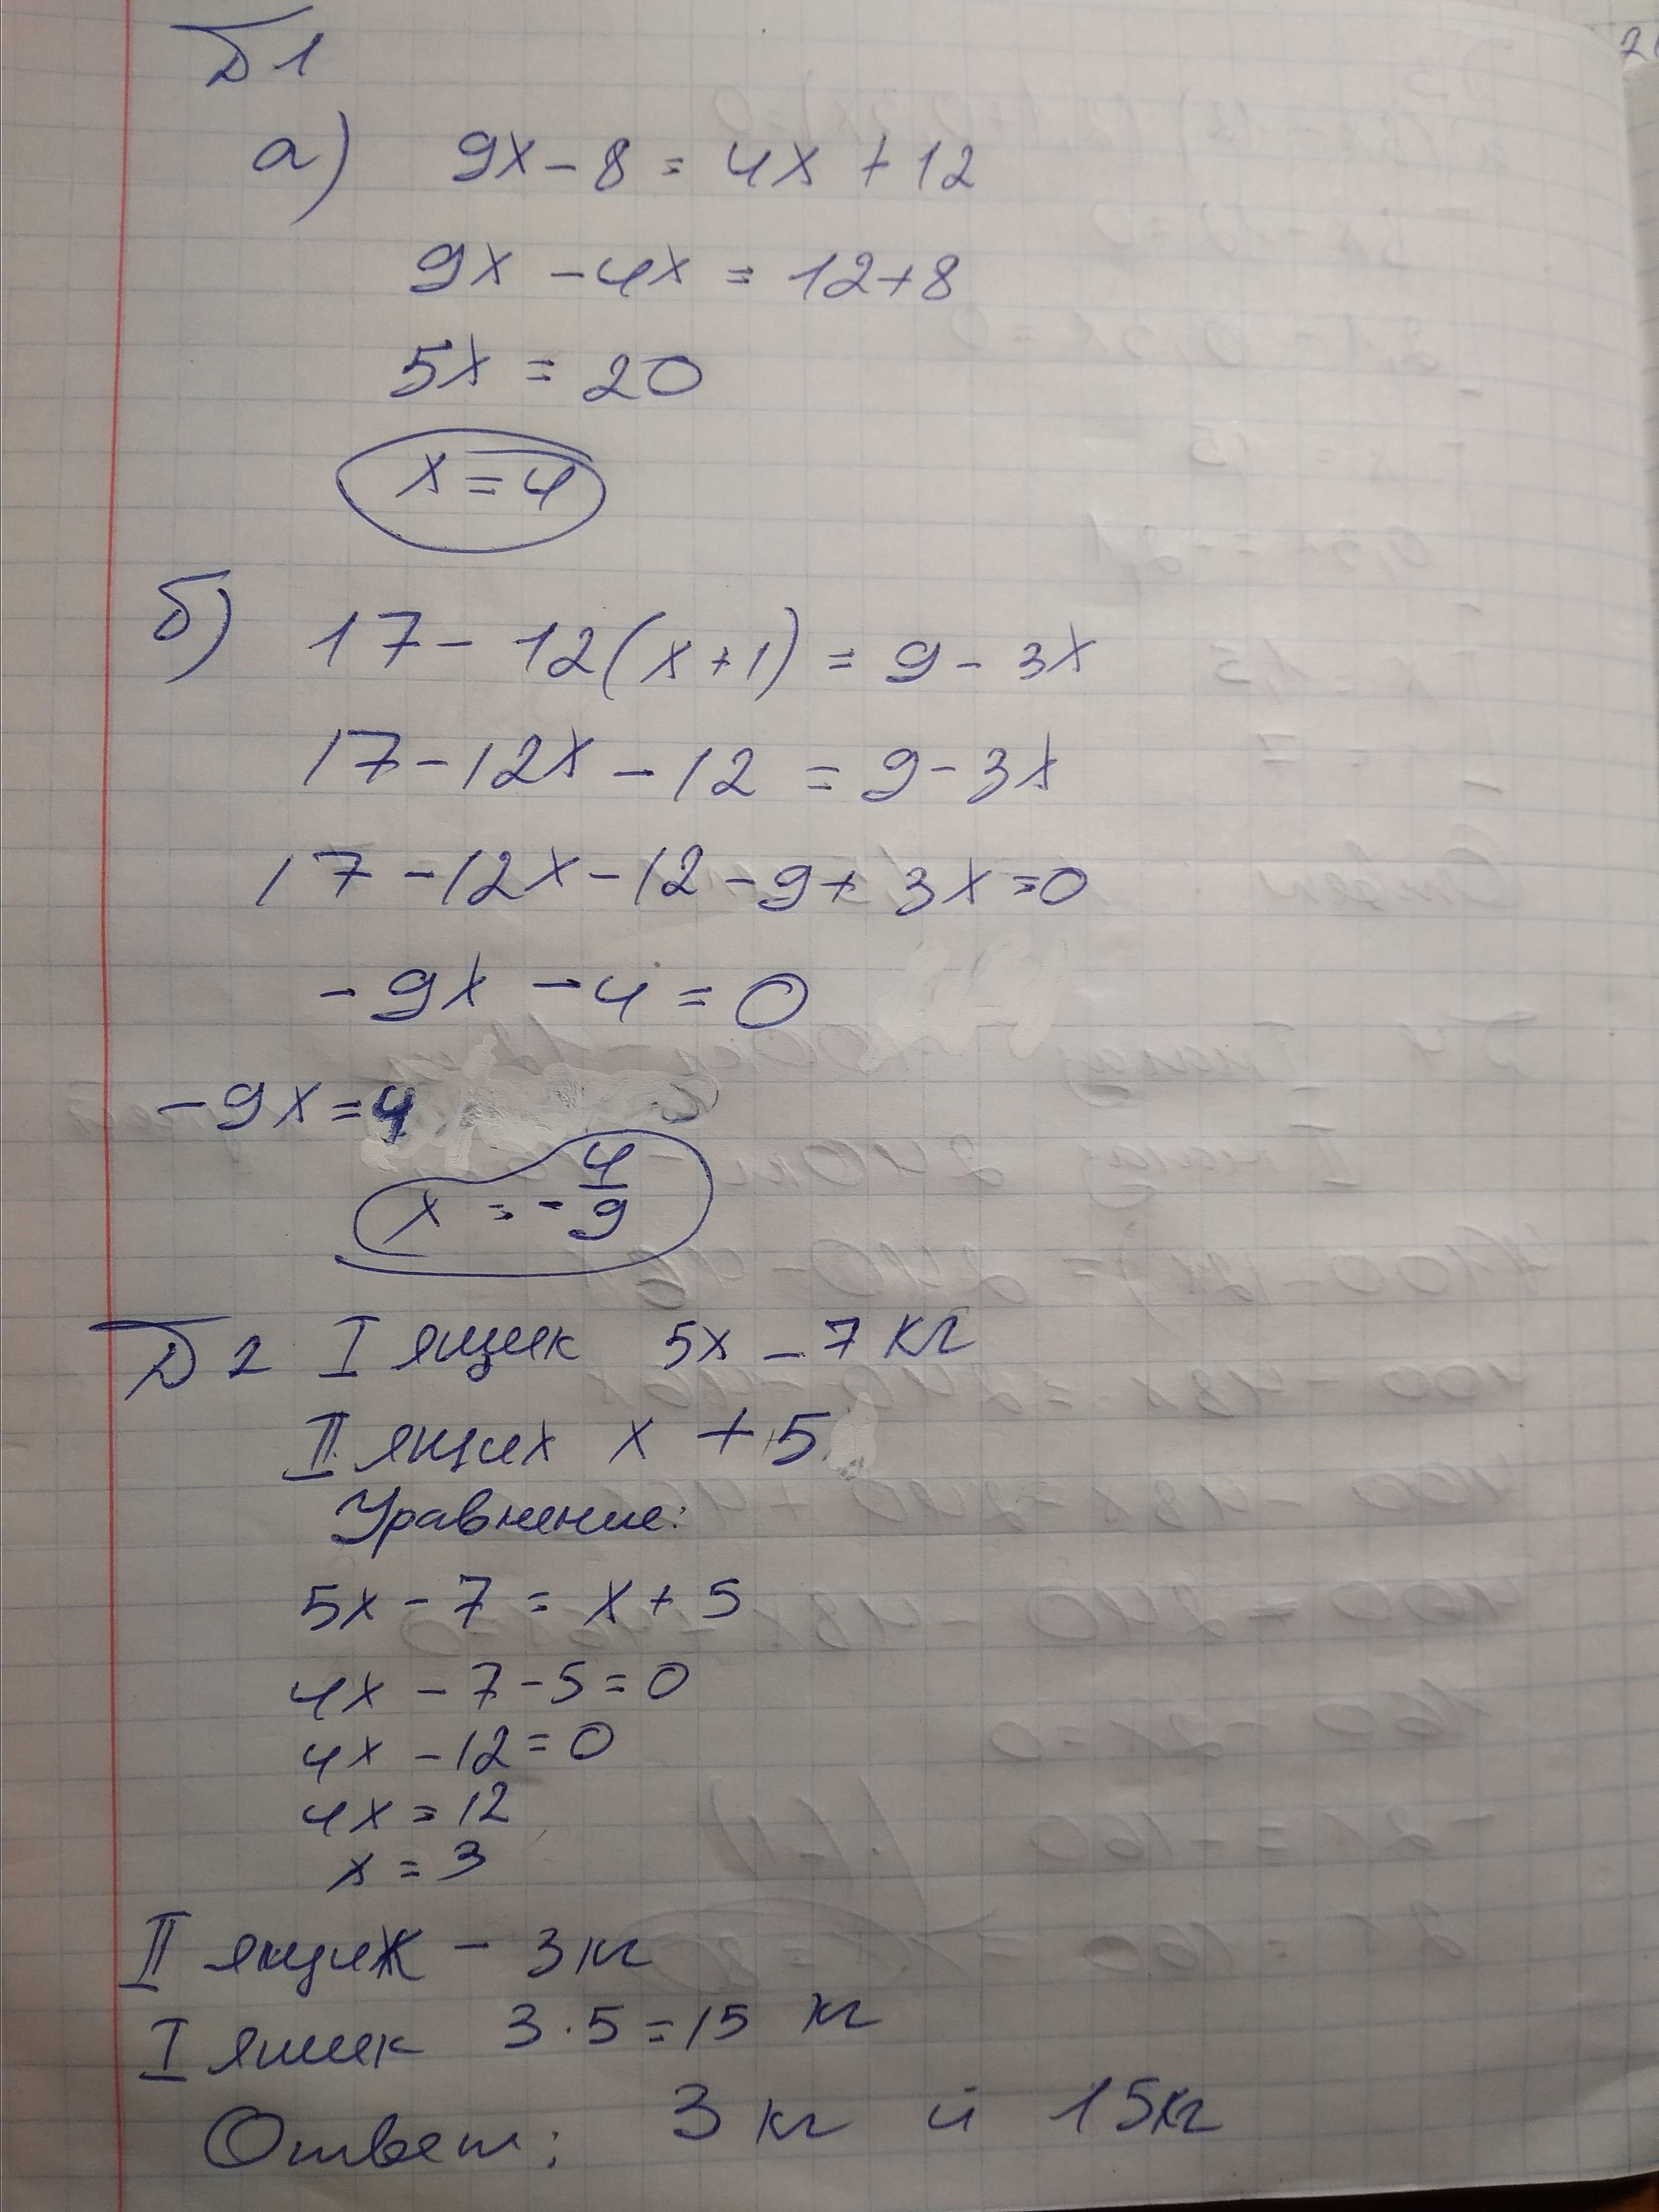 Б1
а) 9x - 8 = 4x + 12
9x - 4x = 12 + 8
5x = 20
x = 4
б) 17 - 12(x+1) = 9 - 3x
17 - 12x - 12 = 9 - 3x
17 - 12x - 12 - 9 + 3x = 0
-9x - 4 = 0
-9x = 4
x = -4/9
Б2 I ящик 5x - 7 кг
II ящик x + 5
Уравнение:
5x - 7 = x + 5
4x - 7 - 5 = 0
4x - 12 = 0
4x = 12
x = 3
II ящик - 3 кг
I ящик 3 · 5 = 15 кг
Ответ: 3 кг и 15 кг